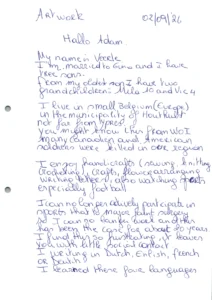 Artwork 02/09/26
Hallo Adam
My name is
I'm married to and I have
two sons.
From my oldest son I have two
grandchildren: Mila 10 and Vic 4
I live in small Belgium (Europe)
in the municipality of Houthulst
not far from
You might know it from WOI
many Canadian and American
soldiers were killed in our region
I enjoy handicrafts (sewing, knitting
crocheting), crafts, flower arranging
writing letters, also watching sports
especially football
I can no longer actively participate in
sports due to major foot surgery
so I can no longer and this
has been the case for about 20 years
I find this so frustrating, it leaves
you with little social contact
I writing in Dutch, English, French
or Spanish
I learned these four languages